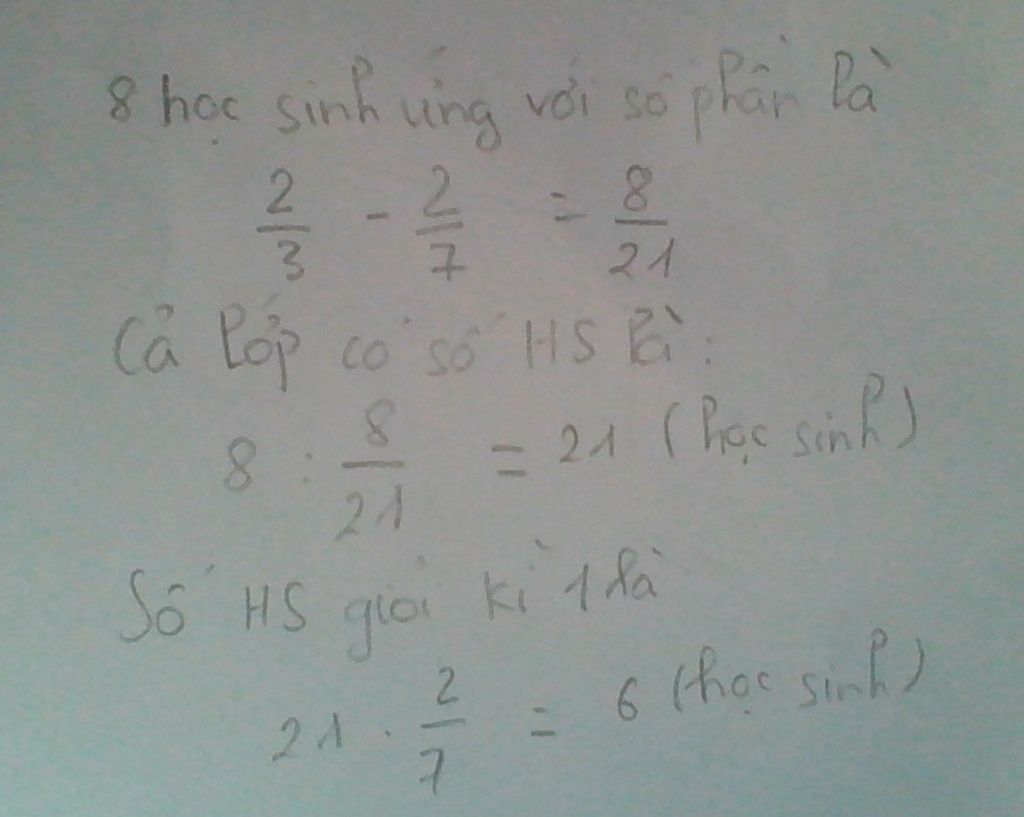 8 học sinh ứng với số phần là
2/3 - 2/7 = 8/21
Cả lớp có số HS là:
8 : 8/21 = 21 (học sinh)
Số HS giỏi kì 1 là
21 . 2/7 = 6 (học sinh)